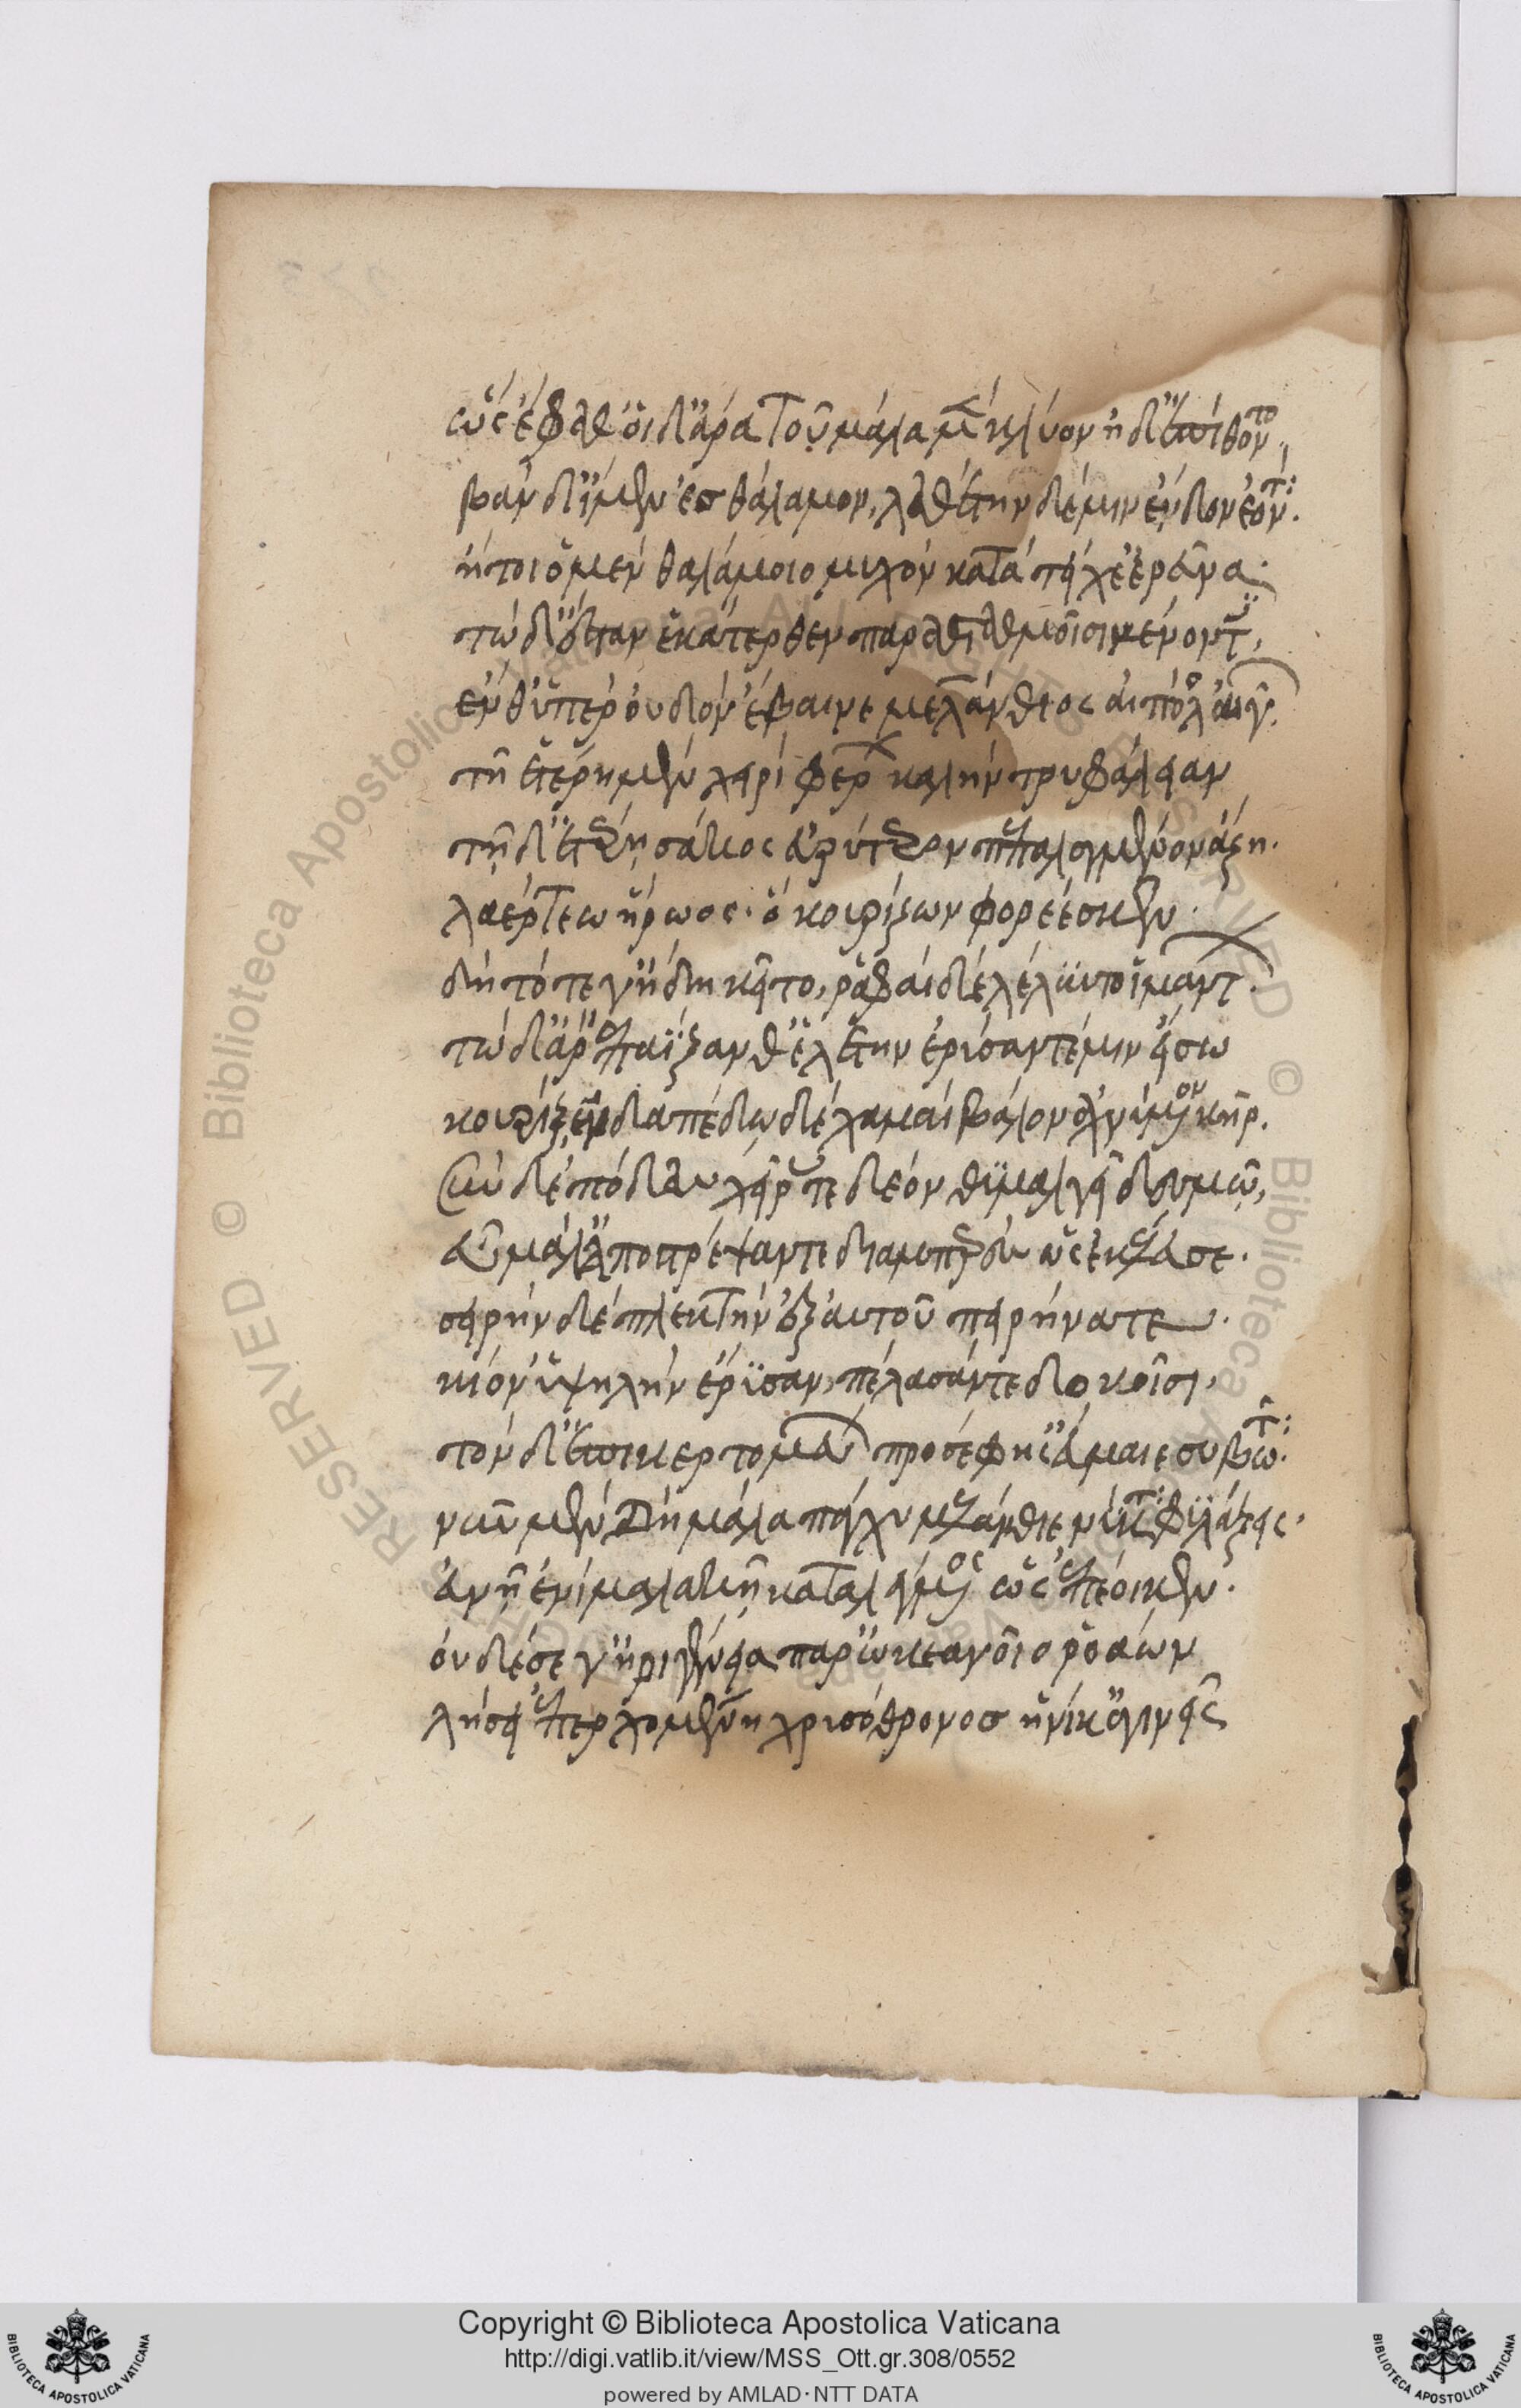 ὣς ἔφαθ' οἱ δ' ἄρα τοῦ μάλα μὲν κλύον ἠδ' ἐπίθοντο,
βὰν δ' ἴμεν ἐς θάλαμον, λαθέτην δέ μιν ἔνδον ἐόντα.
ἤτοι ὁ μὲν θαλάμοιο μυχὸν κατὰ τεύχε' ἐρεῦνα.
τὼ δ' ἔσταν ἑκάτερθεν παρὰ σταθμοῖσι μένοντε,
εὖθ' ὑπὲρ οὐδὸν ἔβαινε μελάνθιος αἰπόλος αἰγῶν.
τῇ ἑτέρῃ μὲν χειρὶ φέρων καλὴν τρυφάλειαν
τῇ δ' ἑτέρῃ σάκος εὐρὺ γέρον πεπαλαγμένον ἄζῃ.
λαέρτεω ἥρωος. ὃ κουρίζων φορέεσκεν.
δὴ τότε γ' ἤδη κεῖτο, ῥαφαὶ δ' ἐλέλυντο ἱμάντων.
τὼ δ' ἄρ' ἐπαΐξανθ' ἑλέτην ἐρυσάν τέ μιν εἴσω
κουρίξ, ἐν δαπέδῳ δὲ χαμαὶ βάλον ἀχνύμενον κῆρ.
σὺν δὲ πόδας χεῖράς τε δέον θυμαλγεῖ δεσμῷ,
εὖ μάλ' ἀποστρέψαντε διαμπερὲς ὡς ἐκέλευσε.
σειρὴν δὲ πλεκτὴν ἐξ αὐτοῦ πειρήναντε.
κίον' ὑψηλὴν ἔρυσαν, πέλασάν τε δοκοῖσι,
τὸν δ' ἐπικερτομέων προσέφης εὔμαιε συβῶτα:
νῦν μὲν δὴ μάλα πάγχυ μελάνθιε νύκτα φυλάξεις.
εὐνῇ ἐνὶ μαλακῇ καταλέγμενος ὥς ἐπέοικεν.
οὐδὲ σέ γ' ἠριγένεια παρ' ὠκεανοῖο ῥοάων
λήσει ἐπερχομένη χρυσόθρονος ἡνίκ' ἀγινεῖς
Copyright © Biblioteca Apostolica Vaticana
http://digi.vatlib.it/view/MSS_Ott.gr.308/0552
powered by AMLAD·NTT DATA